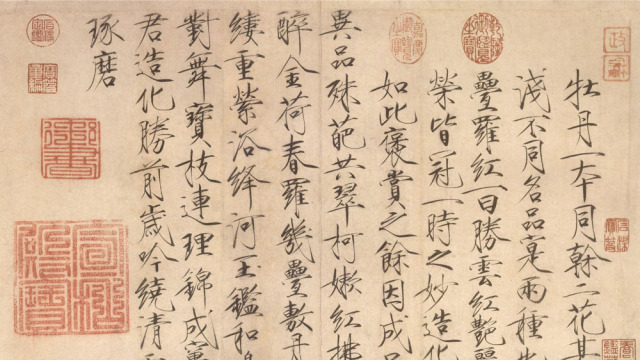 牡丹一本同榦二花其
淺不同名品寔兩種
疊羅紅一曰勝雲紅艷
榮皆冠一時之妙造化
如此褒賞之餘因成
異品殊葩共翠柯嫩紅拂
醉金荷春羅幾疊敷丹
縷重縈浴絳河玉鑑和
對舞寶枝連理錦成
君造化勝前歲吟繞清
琢磨